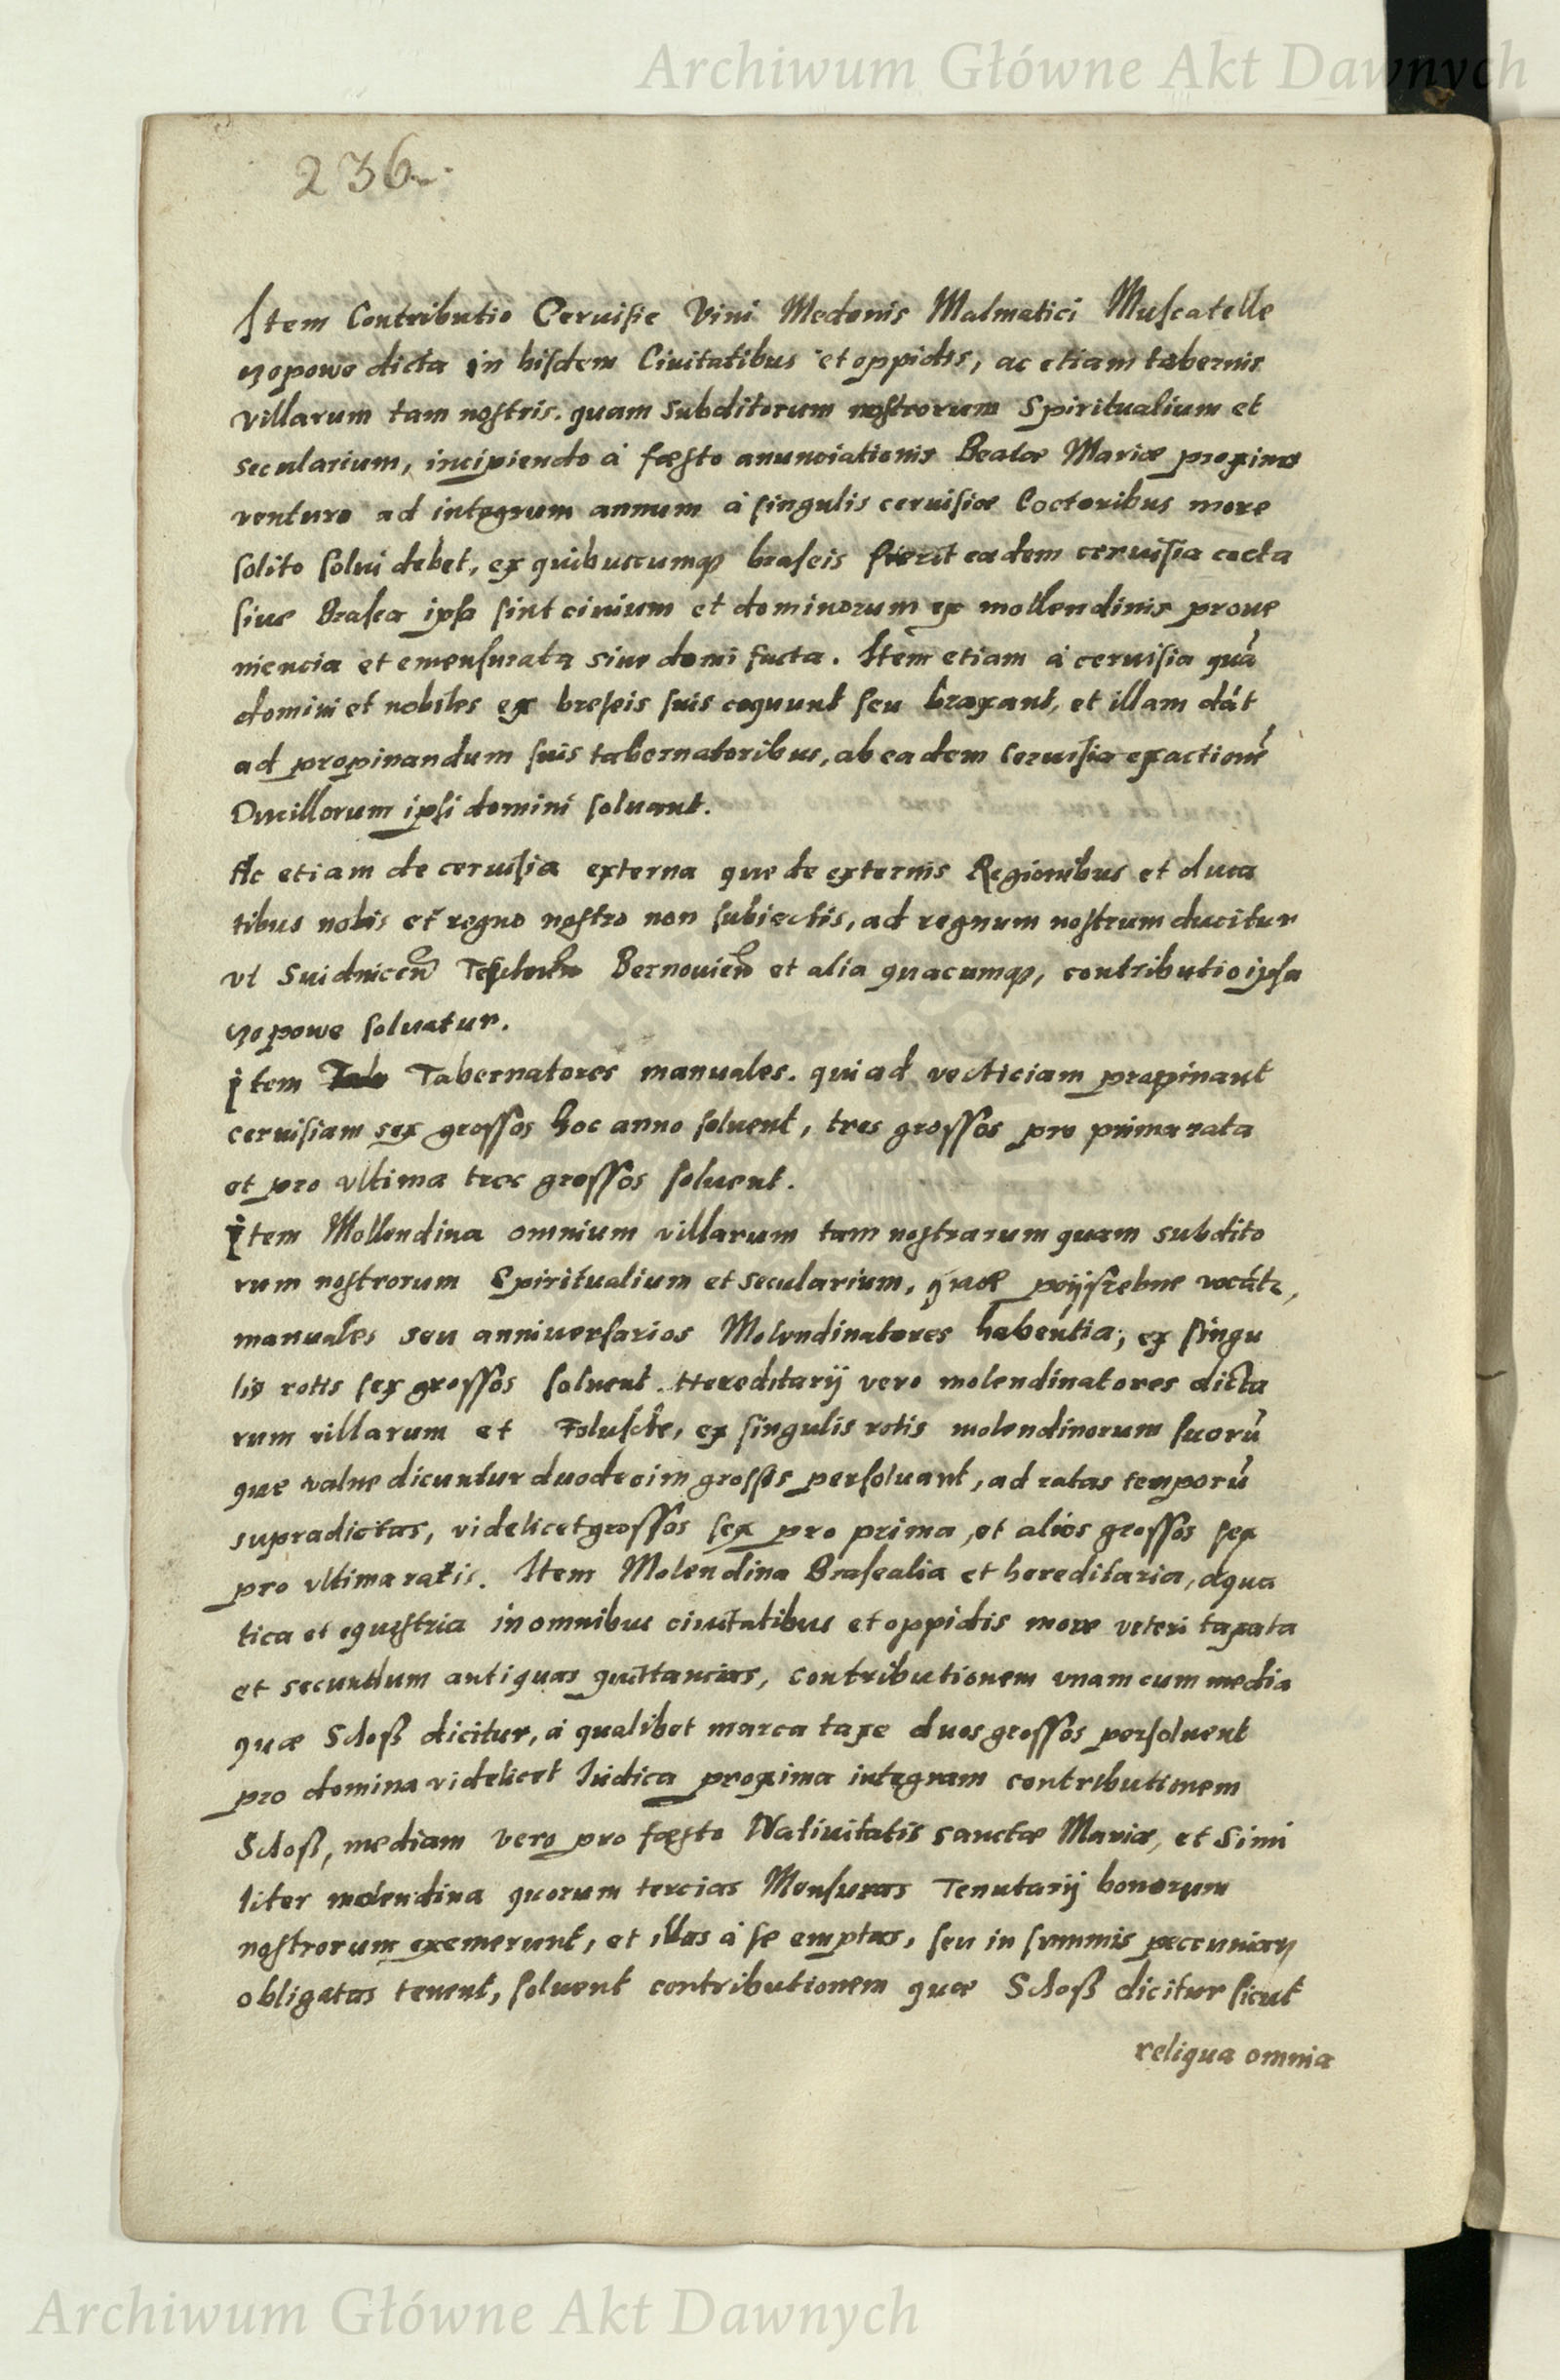 Archiwum Główne Akt Dawnych
236
Item Contributio Ceruisie Vini Medonis Malmatici Muscatelle
czopowe dicta in hisdem Ciuitatibus et oppidis, ac etiam tabernis
villarum tam nostris. quam subditorum nostrorum Spiritualium et
secularium, incipiendo à fæsto anunciationis Beatæ Mariæ proximo
venturo ad integrum annum à singulis ceruisiæ Coctoribus more
solito solui debet, ex quibuscumq braseis fuerit eadem ceruisia cocta
siue Brasea ipsa sint ciuium et dominorum ex mollendinis proue
niencia et emensurata siue domi facta. Item etiam à ceruisia quā
domini et nobiles ex breseis suis coquunt seu braxant, et illam dāt
ad propinandum suis tabernatoribus, ab eadem ceruisia exactionē
Ducillorum ipsi domini soluant.
Ac etiam de ceruisia externa que de externis Regionibus et duca
tibus nobis et regno nostro non subiectis, ad regnum nostrum ducitur
vt Suidnicen Bernouien et alia quacumq, contributio ipsa
czopowe soluatur.
item Tabernatores manuales. qui ad vecticiam propinant
ceruisiam sex grossos hoc anno soluent, tres grossos pro prima rata
et pro vltima tres grossos soluent.
item Mollendina omnium villarum tam nostrarum quam subdito
rum nostrorum Spiritualium et secularium, quæ vocātr,
manuales seu anniuersarios Molendinatores habentia, ex singu
lis rotis sex grossos soluent. Hereditarij vero molendinatores dicta
rum villarum et ex singulis rotis molendinorum suorū
que valne dicuntur duodecim grossos persoluant, ad ratas temporū
supradictas, videlicet grossos sex pro prima, et alios grossos sex
pro vltima ratis. Item Molendina Brasealia et hereditaria, aqua
tica et equestria in omnibus ciuitatibus et oppidis more veteri taxata
et secundum antiquas quittancias, contributionem vnam cum media
quæ Schoß dicitur, à qualibet marca taxe duos grossos persoluent
pro domina videlicet Iudica proxima integram contributionem
Schoß, mediam vero pro fæsto Natiuitatis sanctæ Mariæ, et Simi
liter molendina quorum tercias Mensuras Tenutarij bonorum
nostrorum exemerunt, et illas à se emptas, seu in summis peccuniarum
obligatas tenent, soluent contributionem quæ Schoß dicitur sicut
reliqua omnia
Archiwum Główne Akt Dawnych